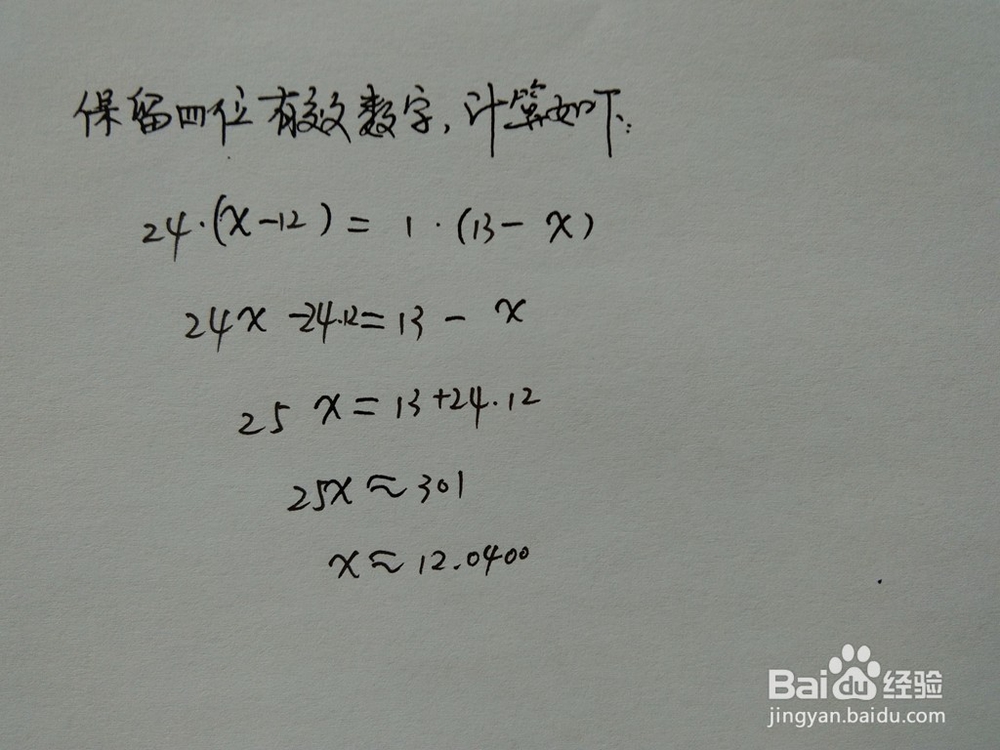 保留四位有效数字,计算如下:
24·(x-12)= 1·(13- x)
24x -24·12=13- x
25 x=13+24·12
25x≈301
x≈12.0400
Baidu经验
jingyan.baidu.com